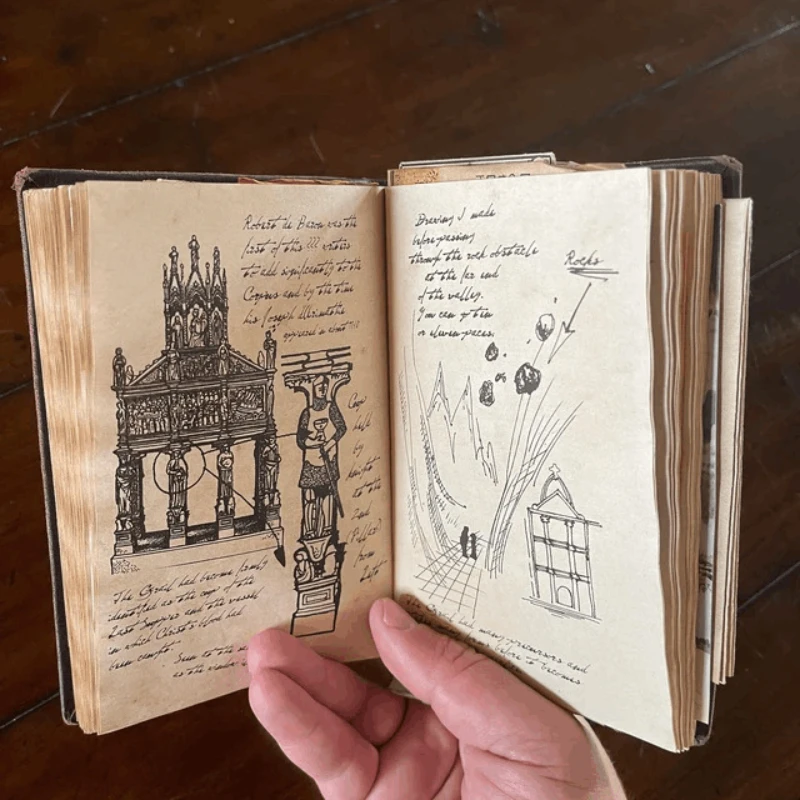 Robert de Boron was the
first of this ??? writers
to add significantly to the
Corpus and by the time
his Joseph d'Arimathe
appeared in about ???
Cup
held
by
knight
at the
2nd
(Pillar)
from
Left
The Grail had become firmly
identified as the cup of the
Last Supper and the vessel
in which Christ's blood had
been caught.
Seen to the
as the
Drawing I made
before passing
through the rock obstacle
at the far end
of the valley.
You can go ten
or eleven paces.
Rocks
or
The Grail had many precursors and
before it becomes